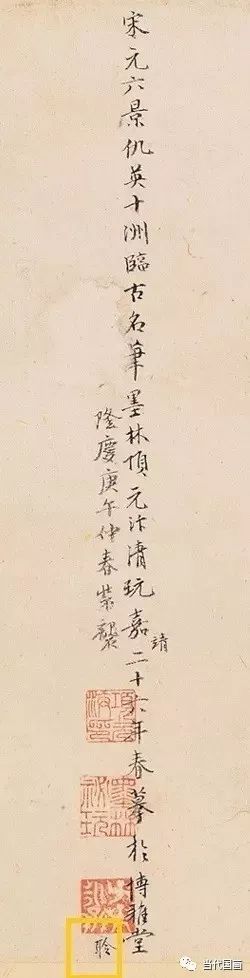 宋元六景仇英十洲臨古名筆墨林項元汴清玩嘉靖二十六年春摹於博雅堂
隆慶庚午仲春裝襲
項元汴印
墨林秘玩
聆
当代国画